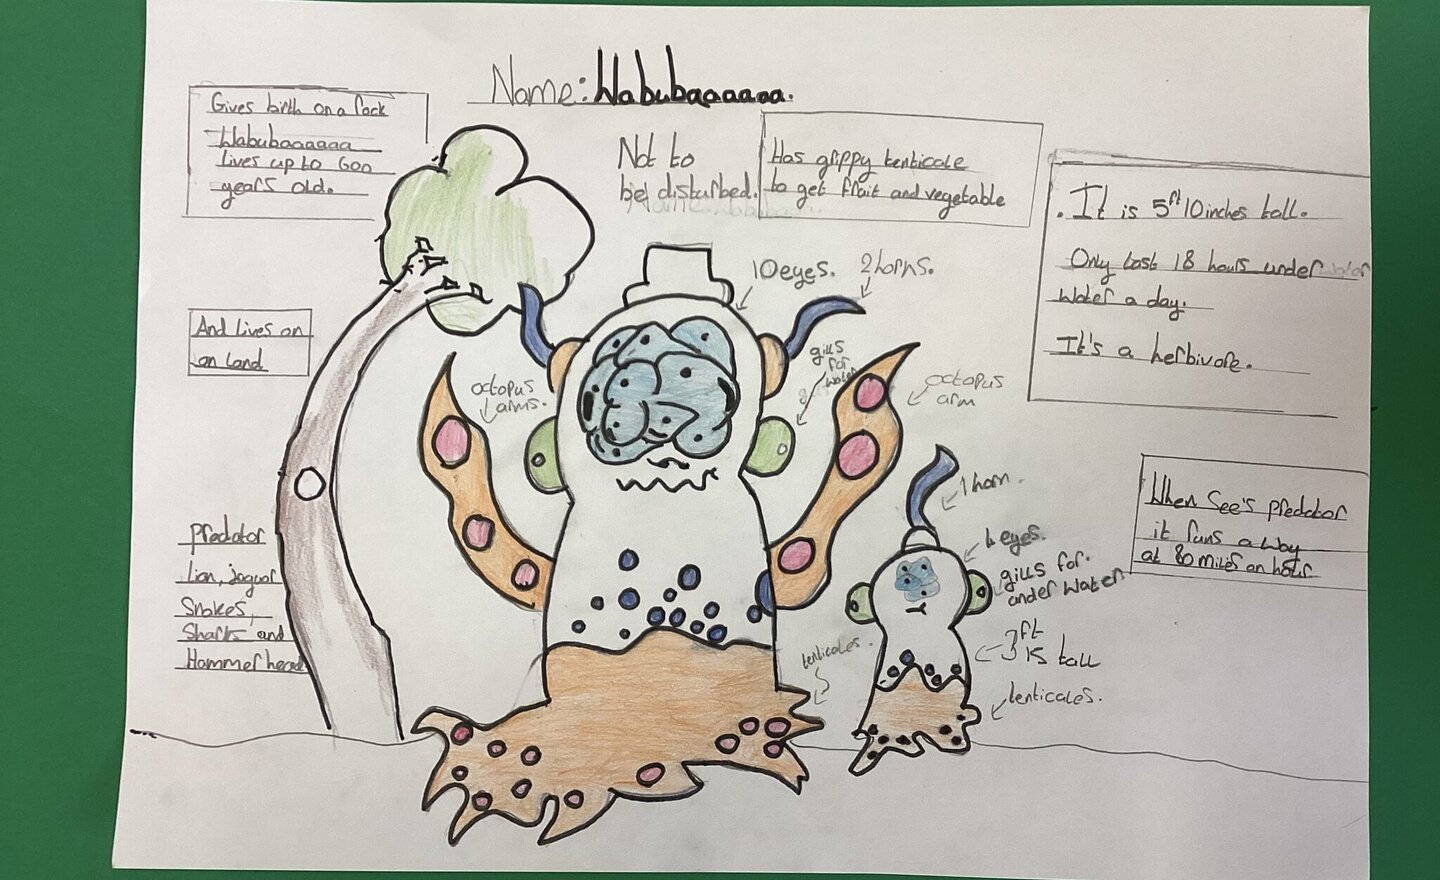 Name: Wabubaaaaaa.
Gives birth on a rock
Wabubaaaaaa
lives up to 600
years old.
Not to
be disturbed.
Has grippy tenticale
to get fruit and vegetable
. It is 5ft 10 inches tall.
Only last 18 hours under
water a day.
It's a herbivore.
10 eyes.
2 horns.
And lives on
an land
octopus
arms.
gills
for
water
octopus
arm
When See's predator
it runs a way
at 80 miles an hour
1 horn.
6 eyes.
gills for
under water
3ft
15 tall
tenticales.
tenticales.
predator
lion, jaguar
Snakes,
Sharks and
Hammerhead